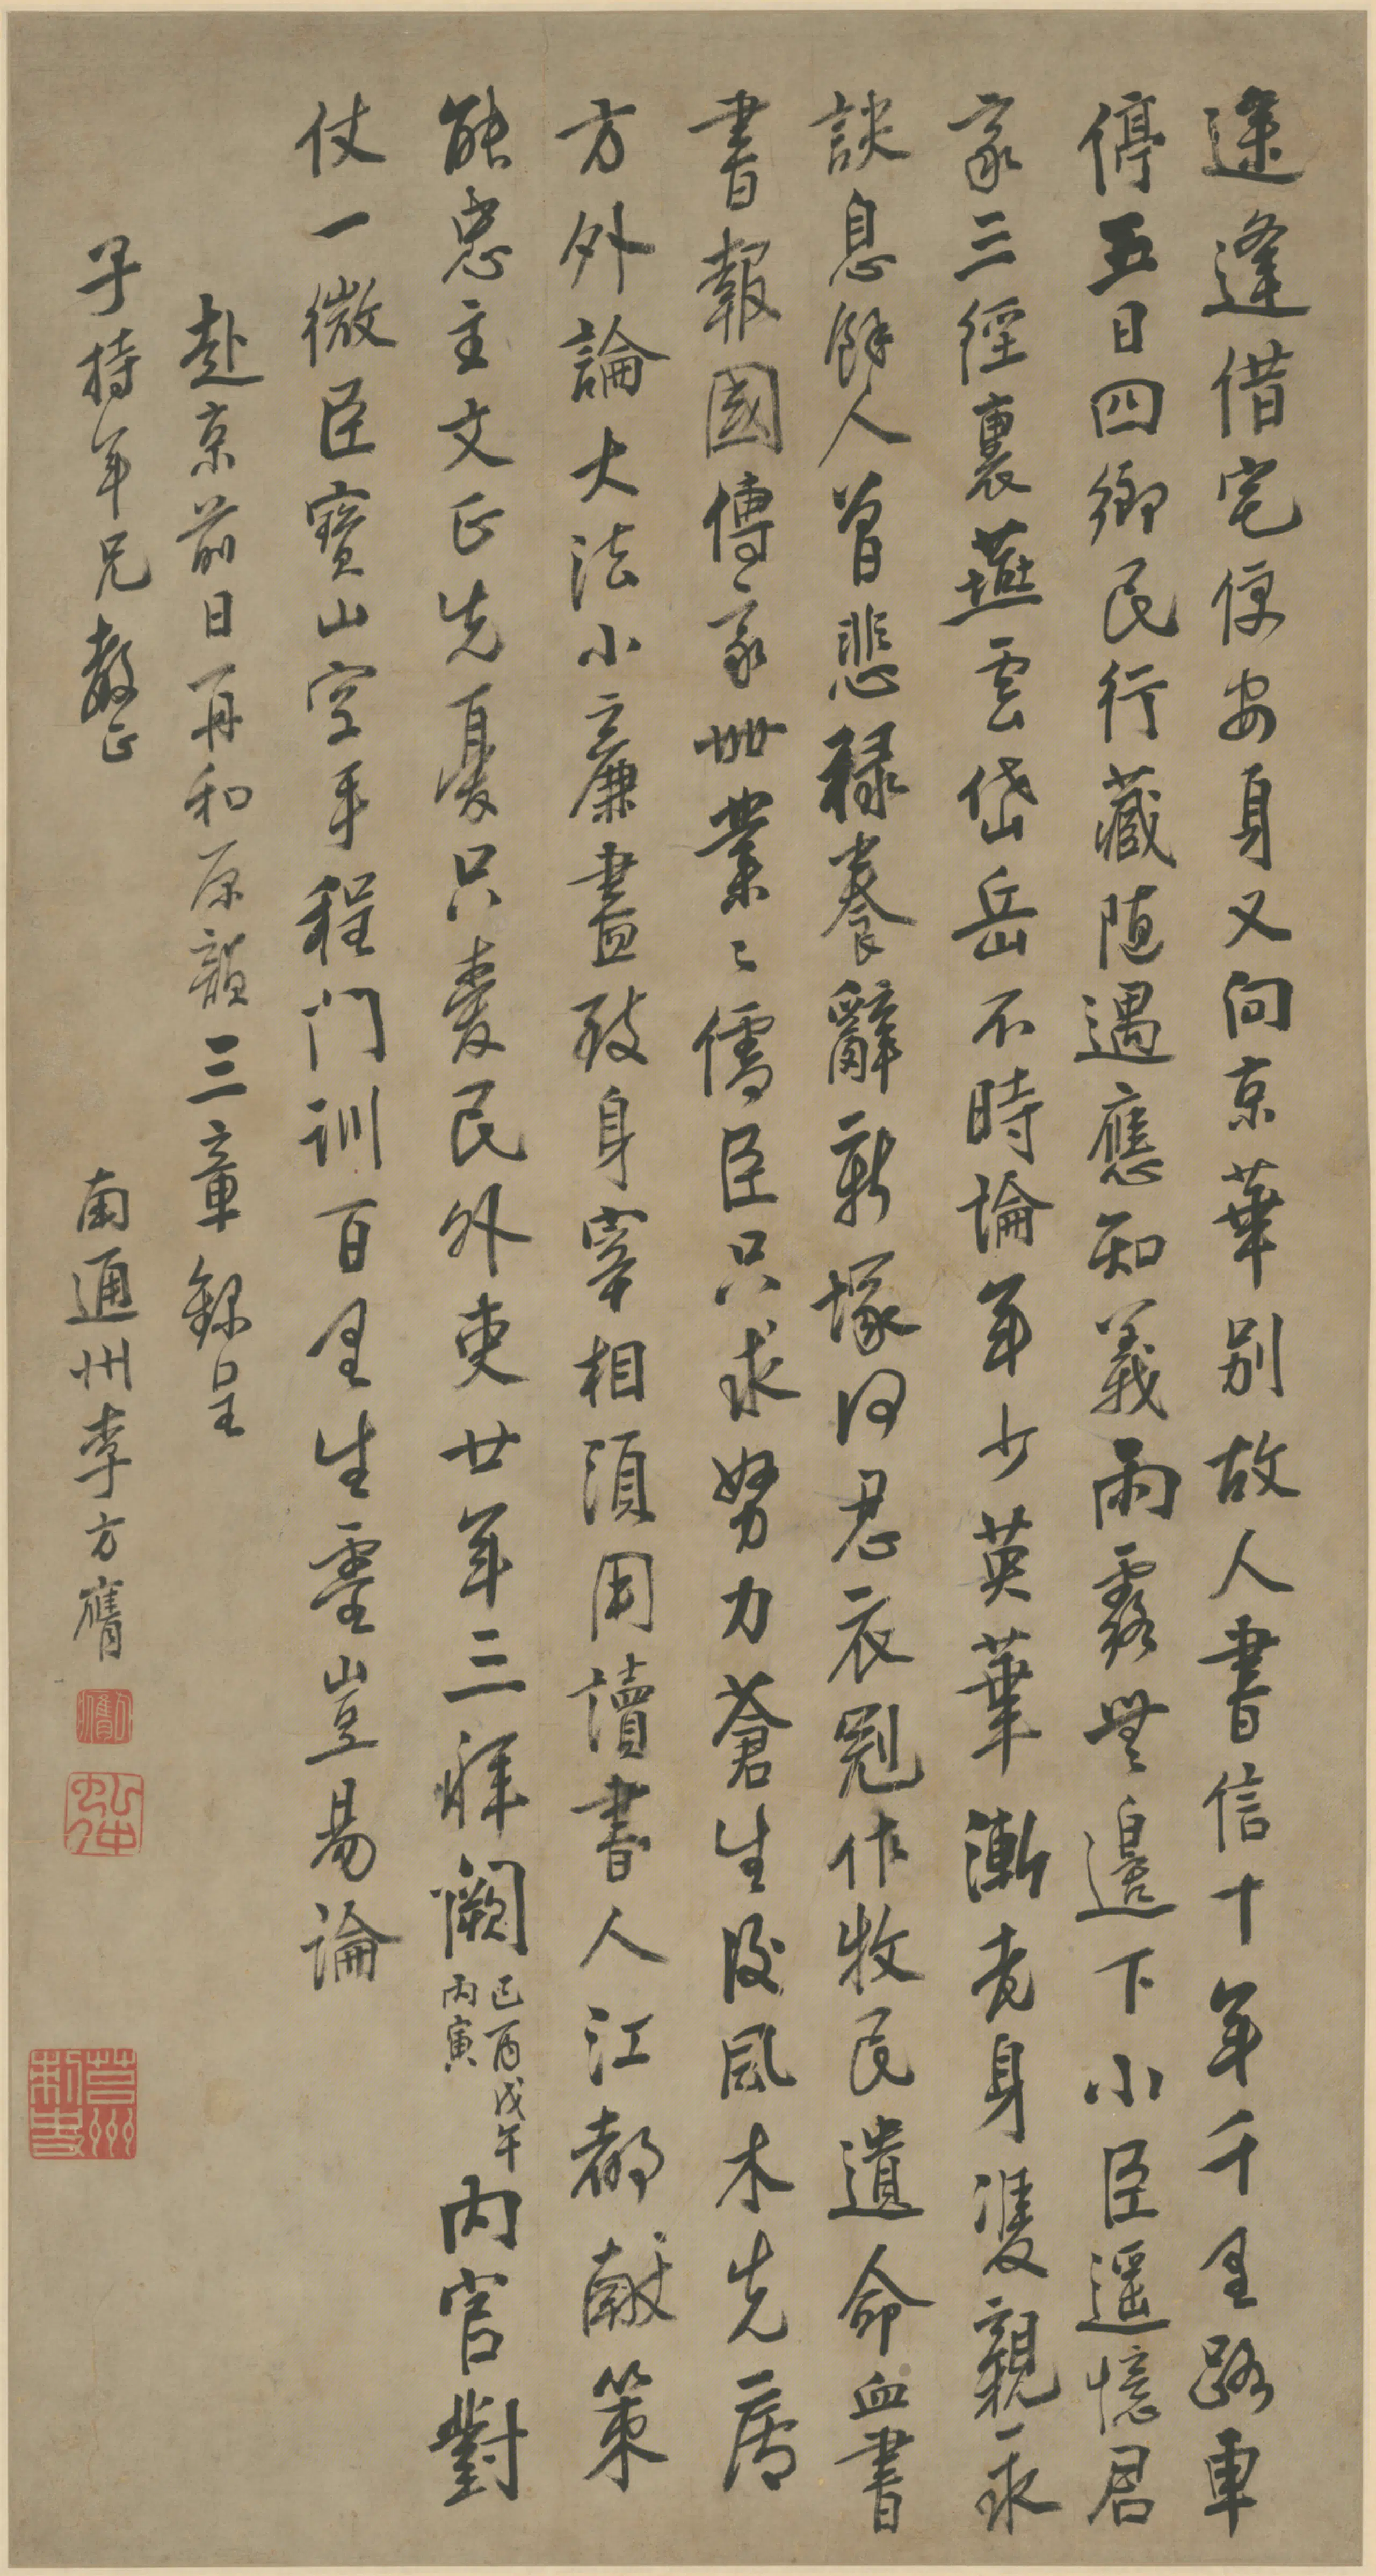 逢逢借宅便安身又向京華別故人書信十年千里路車
停五日四鄉民行藏随遇應知義雨露無邊下小臣遥憶君
家三徑裏燕雲岱岳不時論年少英華漸老身雙親永
訣息餘人曾悲祿養辭新塚何忍衣冠作牧民遺命血書
書報國傳家世業業儒臣只求努力蒼生後風木先廬
方外論大法小廉盡致身宰相須用讀書人江都献策
能忠主文正先憂只愛民外吏廿年三拜闕己酉戊午丙寅内官對
仗一微臣寶山空手程門訓百里生靈豈易論
赴京前日再和原韻三章録呈
子持年兄教正
南通州李方膺